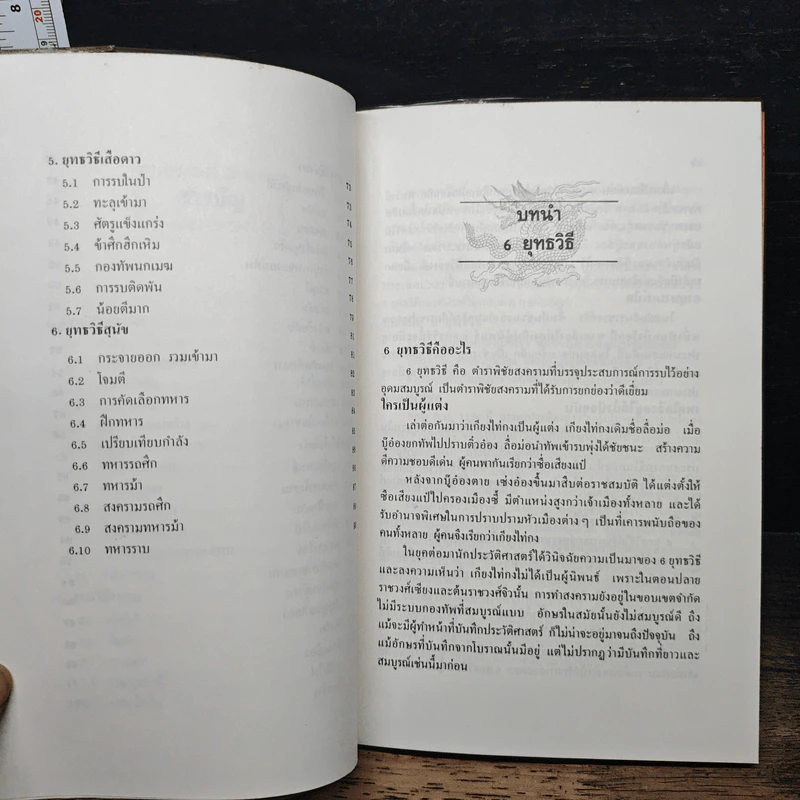 8
20
19
5. ยุทธวิธีเสือดาว
5.1 การรบในป่า 71
5.2 ทะลุเข้ามา 73
5.3 ศัตรูแข็งแกร่ง 74
5.4 ข้าศึกฮึกเหิม 75
5.5 กองทัพนกเมฆ 76
5.6 การรบติดพัน 77
5.7 น้อยตีมาก 78
6. ยุทธวิธีสุนัข
6.1 กระจายออก รวมเข้ามา
6.2 โจมตี
6.3 การคัดเลือกทหาร
6.4 ฝึกทหาร
6.5 เปรียบเทียบกำลัง
6.6 ทหารรถศึก
6.7 ทหารม้า
6.8 สงครามรถศึก
6.9 สงครามทหารม้า
6.10 ทหารราบ
บทนำ
6 ยุทธวิธี
6 ยุทธวิธีคืออะไร
6 ยุทธวิธี คือ ตำราพิชัยสงครามที่บรรจุประสบการณ์การรบไว้อย่าง
อุดมสมบูรณ์ เป็นตำราพิชัยสงครามที่ได้รับการยกย่องว่าดีเยี่ยม
ใครเป็นผู้แต่ง
เล่าต่อกันมาว่าเกียงไท่กงเป็นผู้แต่ง เกียงไท่กงเดิมชื่อลื่อม่อ เมื่อ
บู๊อ๋องยกทัพไปปราบติ๋วอ๋อง ลื่อม่อนำทัพเข้ารบพุ่งได้ชัยชนะ สร้างความ
ดีความชอบดีเด่น ผู้คนพากันเรียกว่าซือเสียงแป๋
หลังจากบู๊อ๋องตาย เซ่งอ๋องขึ้นมาสืบต่อราชสมบัติ ได้แต่งตั้งให้
ซือเสียงแป๋ไปครองเมืองซี้ มีตำแหน่งสูงกว่าเจ้าเมืองทั้งหลาย และได้
รับอำนาจพิเศษในการปราบปรามหัวเมืองต่าง ๆ เป็นที่เคารพนับถือของ
คนทั้งหลาย ผู้คนจึงเรียกว่าเกียงไท่กง
ในยุคต่อมานักประวัติศาสตร์ได้วินิจฉัยความเป็นมาของ 6 ยุทธวิธี
และลงความเห็นว่า เกียงไท่กงไม่ได้เป็นผู้นิพนธ์ เพราะในตอนปลาย
ราชวงศ์เซียงและต้นราชวงศ์จิวนั้น การทำสงครามยังอยู่ในขอบเขตจำกัด
ไม่มีระบบกองทัพที่สมบูรณ์แบบ อักษรในสมัยนั้นยังไม่สมบูรณ์ดี ถึง
แม้จะมีผู้ทำหน้าที่บันทึกประวัติศาสตร์ ก็ไม่น่าจะอยู่มาจนถึงปัจจุบัน ถึง
แม้อักษรที่บันทึกจากโบราณนั้นมีอยู่ แต่ไม่ปรากฏว่ามีบันทึกที่ยาวและ
สมบูรณ์เช่นนี้มาก่อน